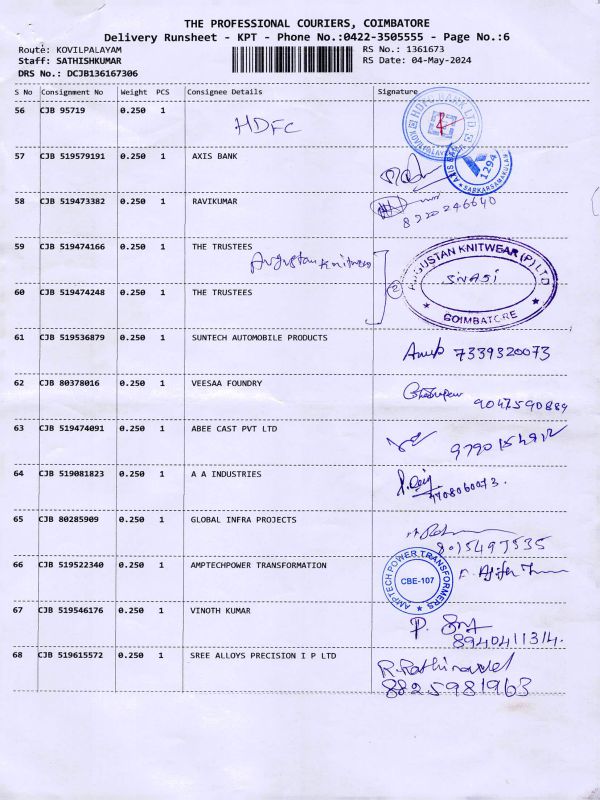 THE PROFESSIONAL COURIERS, COIMBATORE
Delivery Runsheet - KPT - Phone No.:0422-3505555 - Page No.:6
Route: KOVILPALAYAM RS No.: 1361673
Staff: SATHISHKUMAR RS Date: 04-May-2024
DRS No.: DCJB136167306
S No Consignment No Weight PCS Consignee Details Signature
56 CJB 95719 0.250 1 HDFC HDFC BANK LTD
57 CJB 519579191 0.250 1 AXIS BANK AXIS BANK 1294 SARKARSAMAKULAM
58 CJB 519473382 0.250 1 RAVIKUMAR
8220246640
59 CJB 519474166 0.250 1 THE TRUSTEES
Augustan Knitwear AUGUSTAN KNITWEAR (P) LTD
2 COIMBATORE
60 CJB 519474248 0.250 1 THE TRUSTEES
61 CJB 519536879 0.250 1 SUNTECH AUTOMOBILE PRODUCTS
7339320073
62 CJB 80378016 0.250 1 VEESAA FOUNDRY
9047590889
63 CJB 519474091 0.250 1 ABEE CAST PVT LTD
64 CJB 519081823 0.250 1 A A INDUSTRIES
65 CJB 80285909 0.250 1 GLOBAL INFRA PROJECTS
8015497535
66 CJB 519522340 0.250 1 AMPTECHPOWER TRANSFORMATION AMPTECH POWER TRANSFORMERS CBE-107
67 CJB 519546176 0.250 1 VINOTH KUMAR
8940411314.
68 CJB 519615572 0.250 1 SREE ALLOYS PRECISION I P LTD R. Rathinavel
8825981963